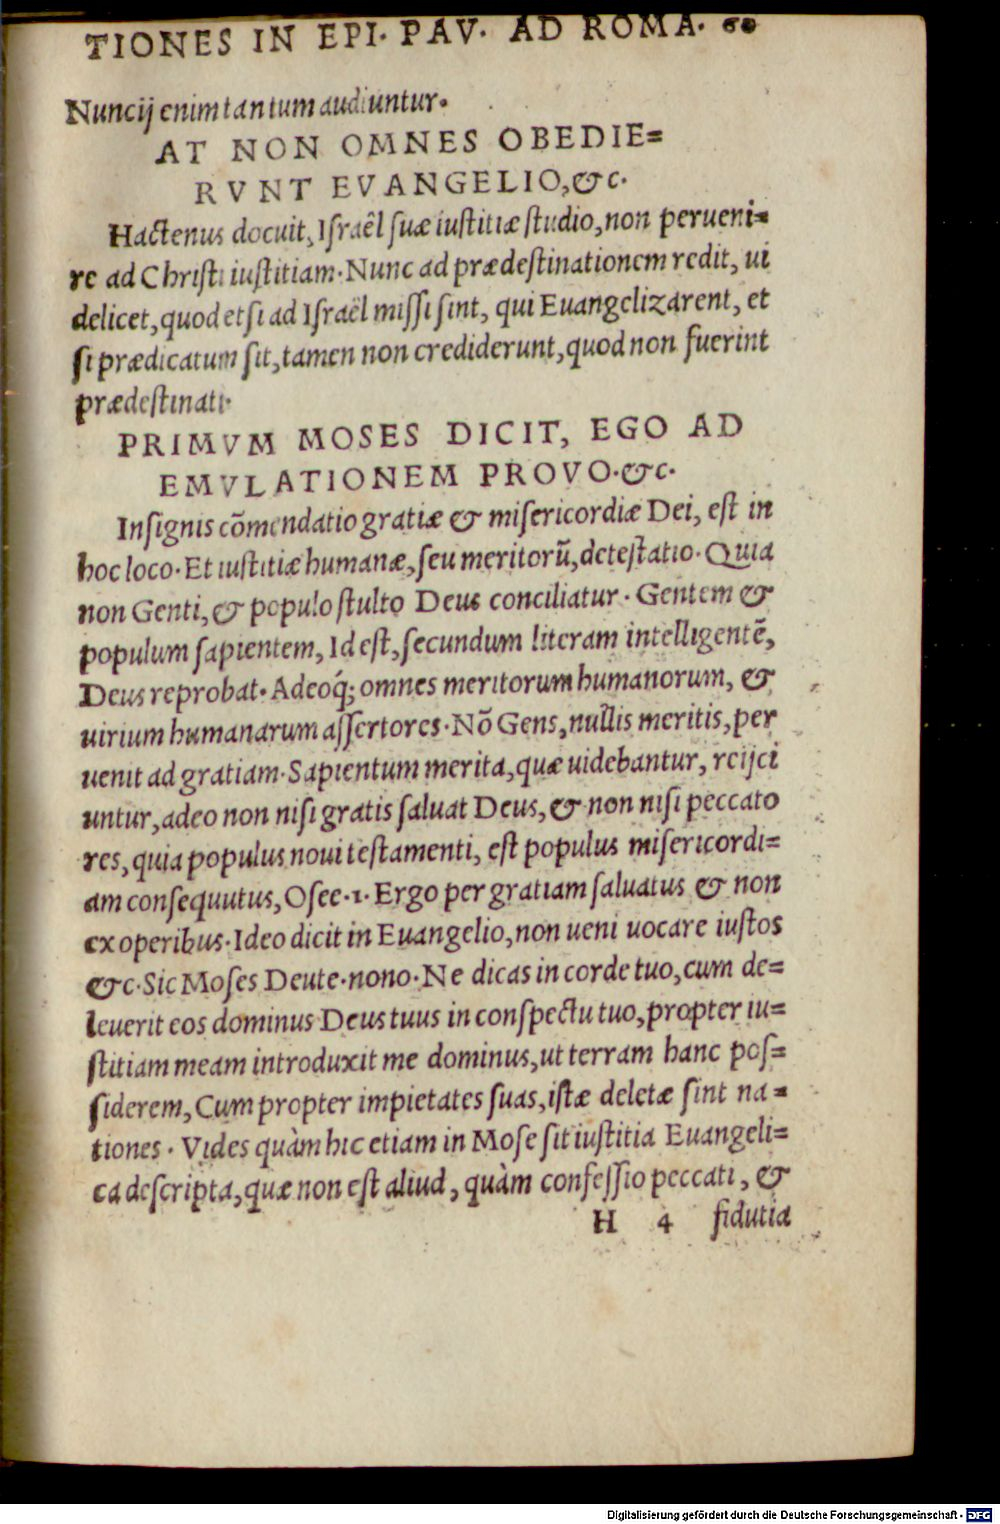 TIONES IN EPI. PAV. AD ROMA. 60
Nuncij enim tantum audiuntur.
AT NON OMNES OBEDIE=
RVNT EVANGELIO, &c.
Hactenus docuit, Israêl suæ iustitiæ studio, non perueni=
re ad Christi iustitiam. Nunc ad prædestinationem redit, ui
delicet, quod etsi ad Israël missi sint, qui Euangelizarent, et
si prædicatum sit, tamen non crediderunt, quod non fuerint
prædestinati.
PRIMVM MOSES DICIT, EGO AD
EMVLATIONEM PROVO. &c.
Insignis cõmendatio gratiæ & misericordiæ Dei, est in
hoc loco. Et iustitiæ humanæ, seu meritorũ, detestatio. Quia
non Genti, & populo stulto Deus conciliatur. Gentem &
populum sapientem, Id est, secundum literam intelligentẽ,
Deus reprobat. Adeoq́; omnes meritorum humanorum, &
uirium humanarum assertores. Nõ Gens, nullis meritis, per
uenit ad gratiam. Sapientum merita, quæ uidebantur, reijci
untur, adeo non nisi gratis saluat Deus, & non nisi peccato
res, quia populus noui testamenti, est populus misericordi=
am consequutus, Osee .1. Ergo per gratiam saluatus & non
ex operibus. Ideo dicit in Euangelio, non ueni uocare iustos
&c. Sic Moses Deute. nono. Ne dicas in corde tuo, cum de=
leuerit eos dominus Deus tuus in conspectu tuo, propter iu=
stitiam meam introduxit me dominus, ut terram hanc pos=
siderem, Cum propter impietates suas, istæ deletæ sint na=
tiones. Vides quàm hic etiam in Mose sit iustitia Euangeli=
ca descripta, quæ non est aliud, quàm confessio peccati, &
H 4 fidutia
Digitalisierung gefördert durch die Deutsche Forschungsgemeinschaft - DFG